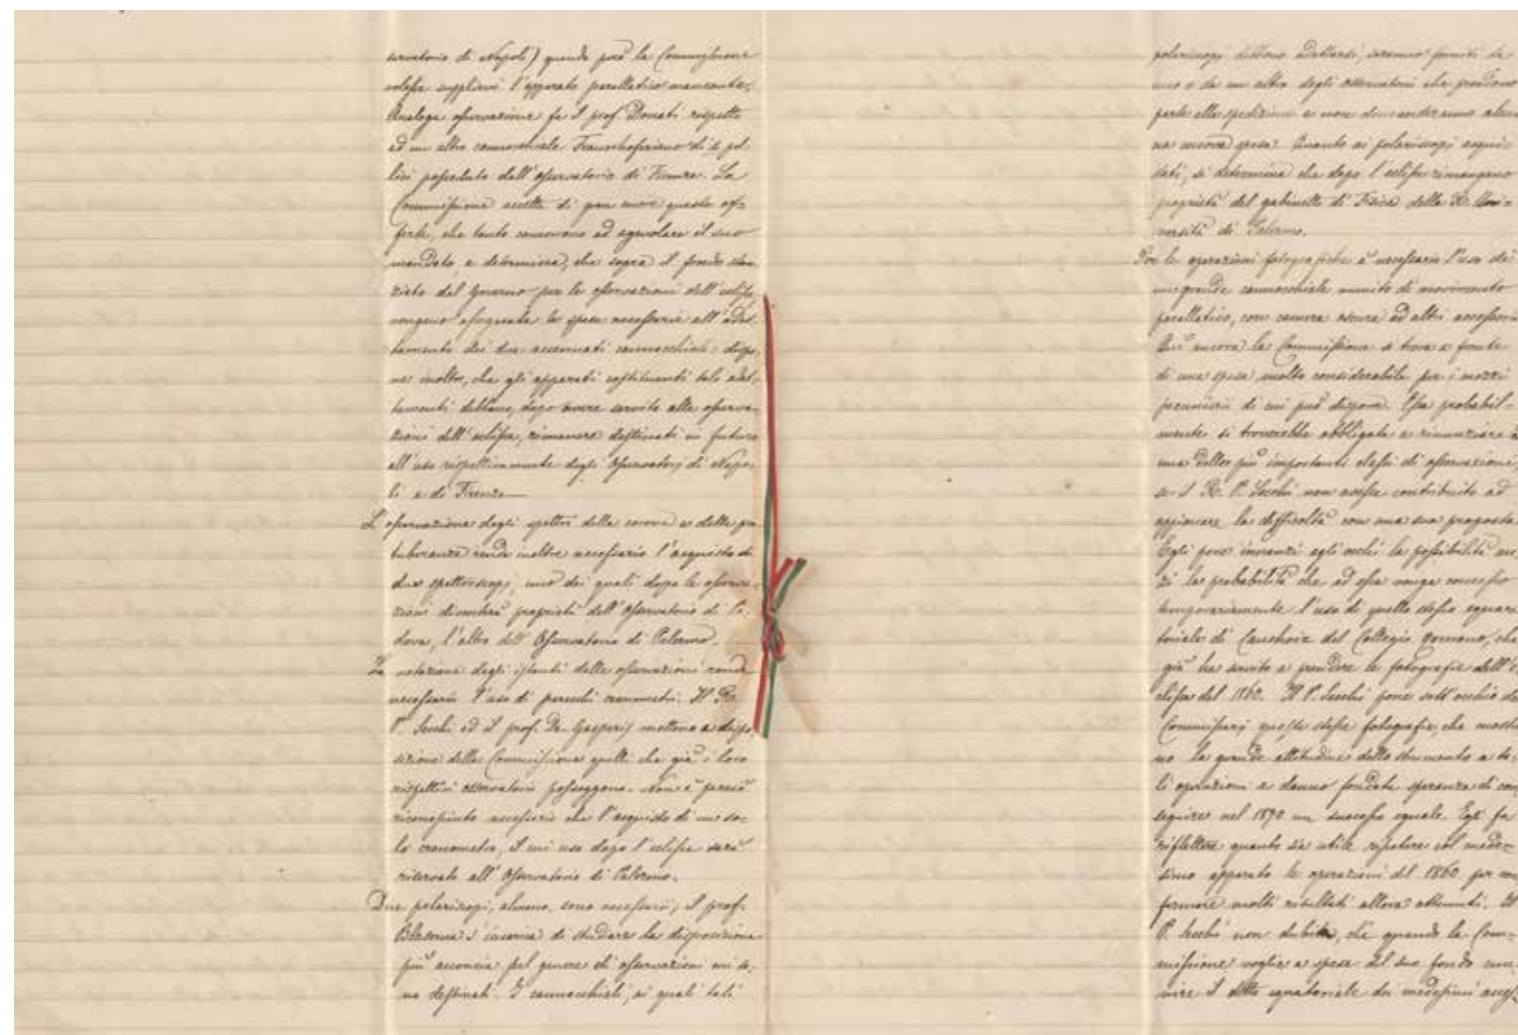 servatorio di Napoli) quando però la Commissione
volesse supplirvi l'apparato parallatico mancante.
Analoga osservazione fa il prof. Donati rispetto
ad un altro cannocchiale Fraunhoferiano di 4 pol-
lici posseduto dall'osservatorio di Firenze. La
Commissione accetta di gran cuore queste of-
ferte, che tanto concorrono ad agevolare il suo
mandato, e determina, che sopra il fondo stan-
ziato dal Governo per le osservazioni dell'eclisse,
vengano assegnate le spese necessarie all'adat-
tamento dei due accennati cannocchiali: dispo-
ne inoltre, che gli apparati costituenti tale adat-
tamento debbano, dopo avere servito alle osserva-
zioni dell'eclisse, rimanere destinati in futuro
all'uso rispettivamente degli Osservatorj di Napo-
li e di Firenze.
L'osservazione degli spettri della corona e delle pro-
tuberanze rende inoltre necessario l'acquisto di
due spettroscopj, uno dei quali dopo le osserva-
zioni diventerà proprietà dell'Osservatorio di Pa-
dova, l'altro dell'Osservatorio di Palermo.
La notazione degli istanti delle osservazioni rende
necessario l'uso di parecchi cronometri. Il R.
P. Secchi ed il prof. De Gasparis mettono a dispo-
sizione della Commissione quelli che già i loro
rispettivi osservatorii posseggono. Non è perciò
riconosciuto necessario che l'acquisto di un so-
lo cronometro, il cui uso dopo l'eclisse sarà
riservato all'Osservatorio di Palermo.
Due polariscopi, almeno, sono necessarii; il prof.
Blaserna s'incarica di studiare la disposizione
più acconcia pel genere di osservazioni cui so-
no destinati. I cannocchiali, ai quali tali
polariscopi debbono adattarsi, saranno forniti da
uno o da un altro degli osservatorii che prendono
parte alla spedizione e non domanderanno alcu-
na nuova spesa. Quanto ai polariscopi acquis-
tati, si determina che dopo l'eclisse rimangano
proprietà del gabinetto di Fisica della R. Uni-
versità di Palermo.
Per le operazioni fotografiche è necessario l'uso di
un grande cannocchiale munito di movimento
parallatico, con camera oscura ed altri accessori
Qui ancora la Commissione si trova a fronte
di una spesa molto considerabile per i mezzi
pecuniarii di cui può disporre. Essa probabil-
mente si troverebbe obbligata a rinunziare a
una delle più importanti classi di osservazioni,
se il R. P. Secchi non avesse contribuito ad
appianare la difficoltà con una sua proposta
Egli pone innanzi agli occhi la possibilità an-
zi la probabilità che ad essa venga concesso
temporariamente l'uso di quello stesso equato
toriale di Cauchoix del Collegio romano, che
già ha servito a prendere le fotografie dell'e
clisse del 1860. Il P. Secchi pone sott'occhio dei
Commissarj queste stesse fotografie, che mostra
no la grande attitudine dello strumento a ta-
li operazioni e danno fondata speranza di con
seguire nel 1870 un successo eguale. Egli fa
riflettere quanto sia utile ripetere col mede-
simo apparato le operazioni del 1860 per con
fermare molti risultati allora ottenuti. Il
P. Secchi non dubita, che quando la Com-
missione voglia a spese del suo fondo mu-
nire il detto equatoriale dei medesimi acces-